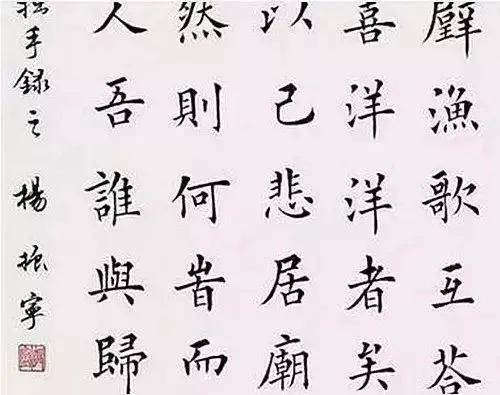 璧漁歌互荅
喜洋洋者矣
以己悲居廟
然則何旹而
人吾誰與歸
手録之 楊振寧